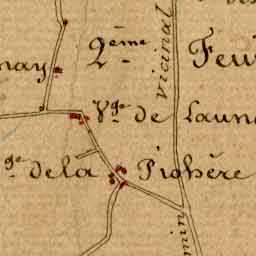 2ème Feui
nay
vicinal
Vge de Laun
ge de la Piohère
min